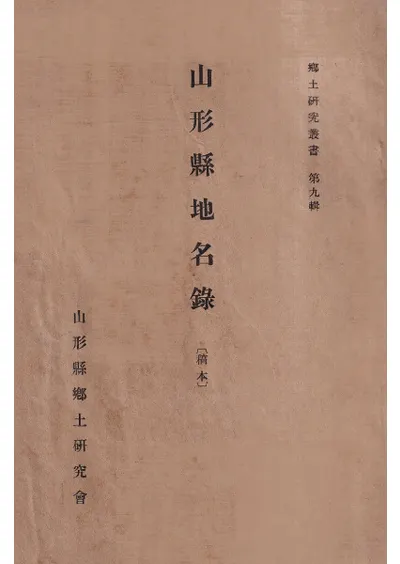 鄕土硏究叢書 第九輯
山形縣地名錄
〔稿本〕
山形縣鄕土硏究會